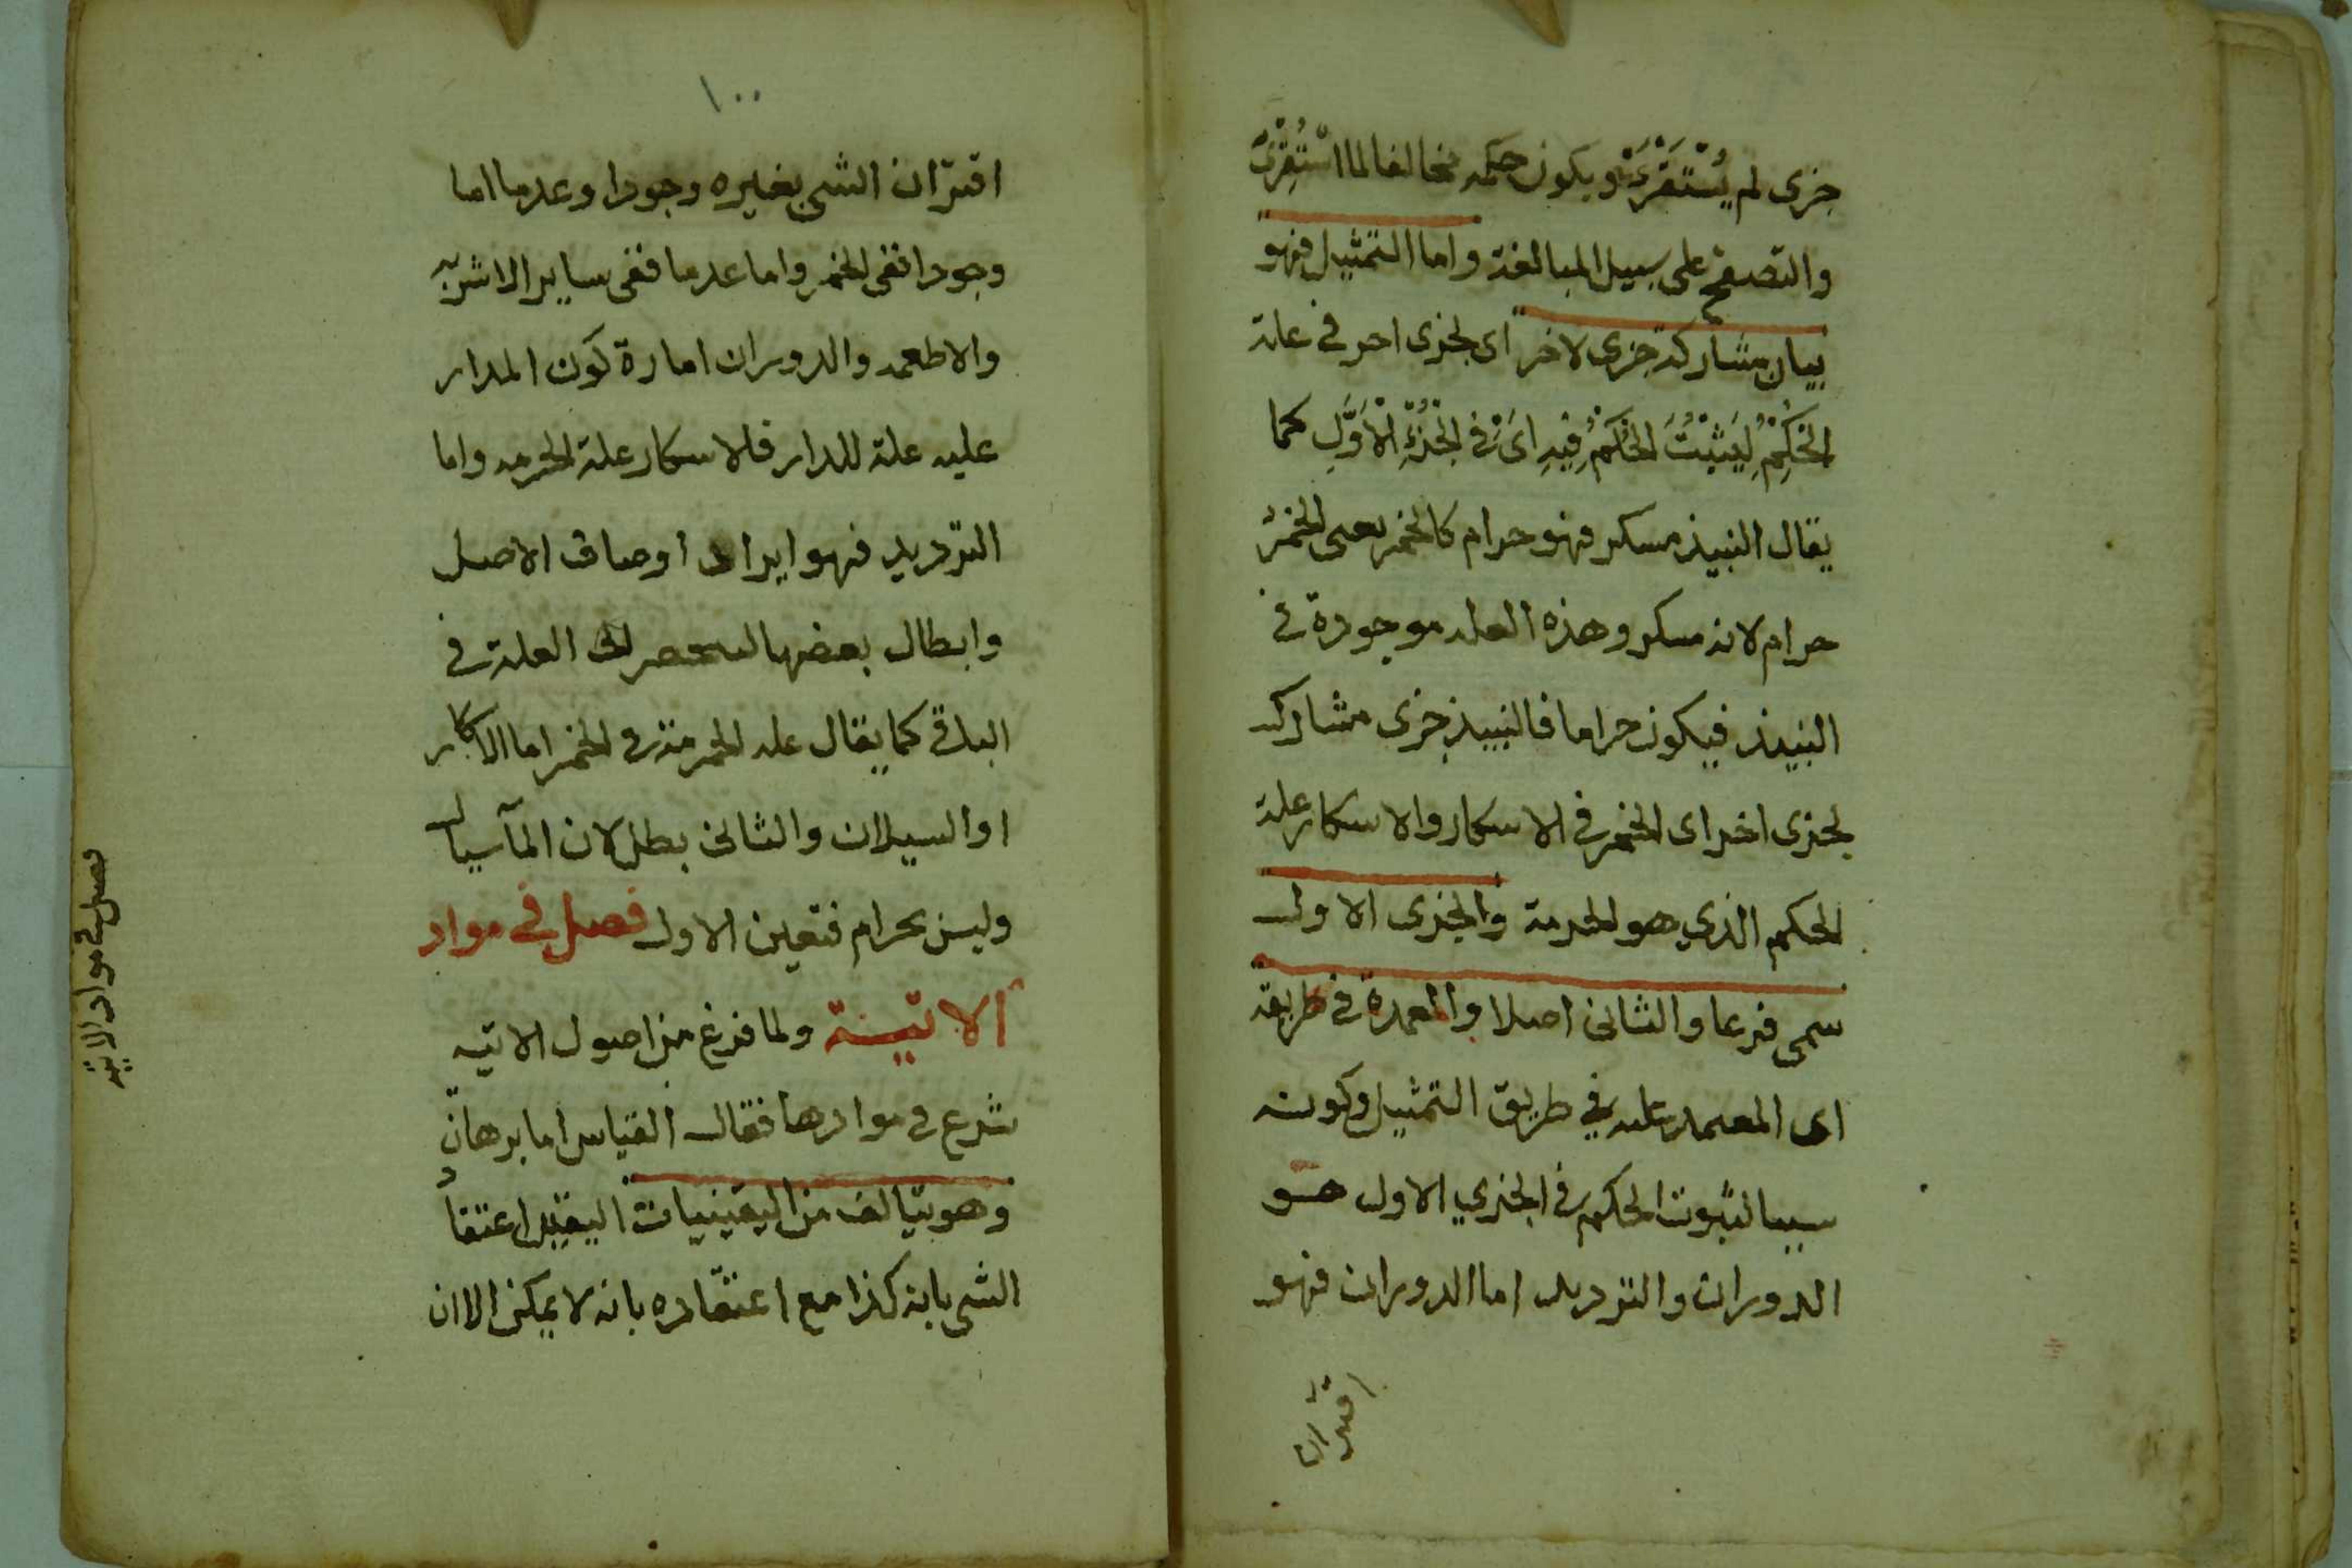 جزى لم يُسْتَقْرَء ويكون حكمه مخالفا لما اسْتُقِرَئ
والتصفح على سبيل المبالغة واما التمثيل فهو
بيان مشاركة جزى لاخر اى لجزى اخر في علة
الحُكِمْ لِيَثْبُتَ الحُكمُ فِيهِ اىْ في الجُزْءِ الْاَوَّلِ كما
يقال النبيذ مسكر فهو حرام كالخمر يعنى الخمر
حرام لانه مسكر وهذه العله موجودة في
النبيذ فيكون حراما فالنبيذ جزى مشارك
لجزى اخر اى الخمر في الاسكار والاسكار علة
الحكم الذي هو الحرمة والجزى الاول
سمى فرعا والثانى اصلا والعمدة في طريقه
اى المعمد عليه في طريق التمثيل وكونه
سببا لثبوت الحكم في الجزي الاول هو
الدوران والترديد اما الدوران فهو
اقتران
١٠٠
اقتران الشى بغيره وجودا وعدما اما
وجودا ففى الخمر واما عدما ففى ساير الاشربه
والاطعمه والدوران امارة كون المدار
عليه علة للدار فالاسكار علة الحرمه واما
الترديد فهو ايراد اوصاف الاصل
وابطال بعضها لينحصر العلة في
الباقى كما يقال عله الحرمة في الخمر اما الاسكار
او السيلان والثانى بطل لان الماء سيال
وليس بحرام فتعين الاول فصل في مواد
الاتيسة ولما فرغ من اصول الاتيه
شرع في موادها فقال القياس اما برهانى
وهو يتالف من اليقينيات اليقين اعتقاد
الشى بانه كذا مع اعتقاده بانه لا يمكن الا ان
فصل في مواد الاتية